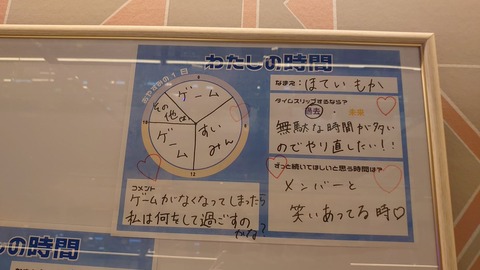 わたしの時間
おやすみの1日
ゲーム
その他
ゲーム
すいみん
12
コメント
ゲームがなくなってしまったら
私は何をして過ごすの
かな?
なまえ:ほてい もか
タイムスリップするなら?
過去 未来
無駄な時間が多い
のでやり直したい!!
ずっと続いてほしいと思う時間は?
メンバーと
笑いあってる時♡
の時間